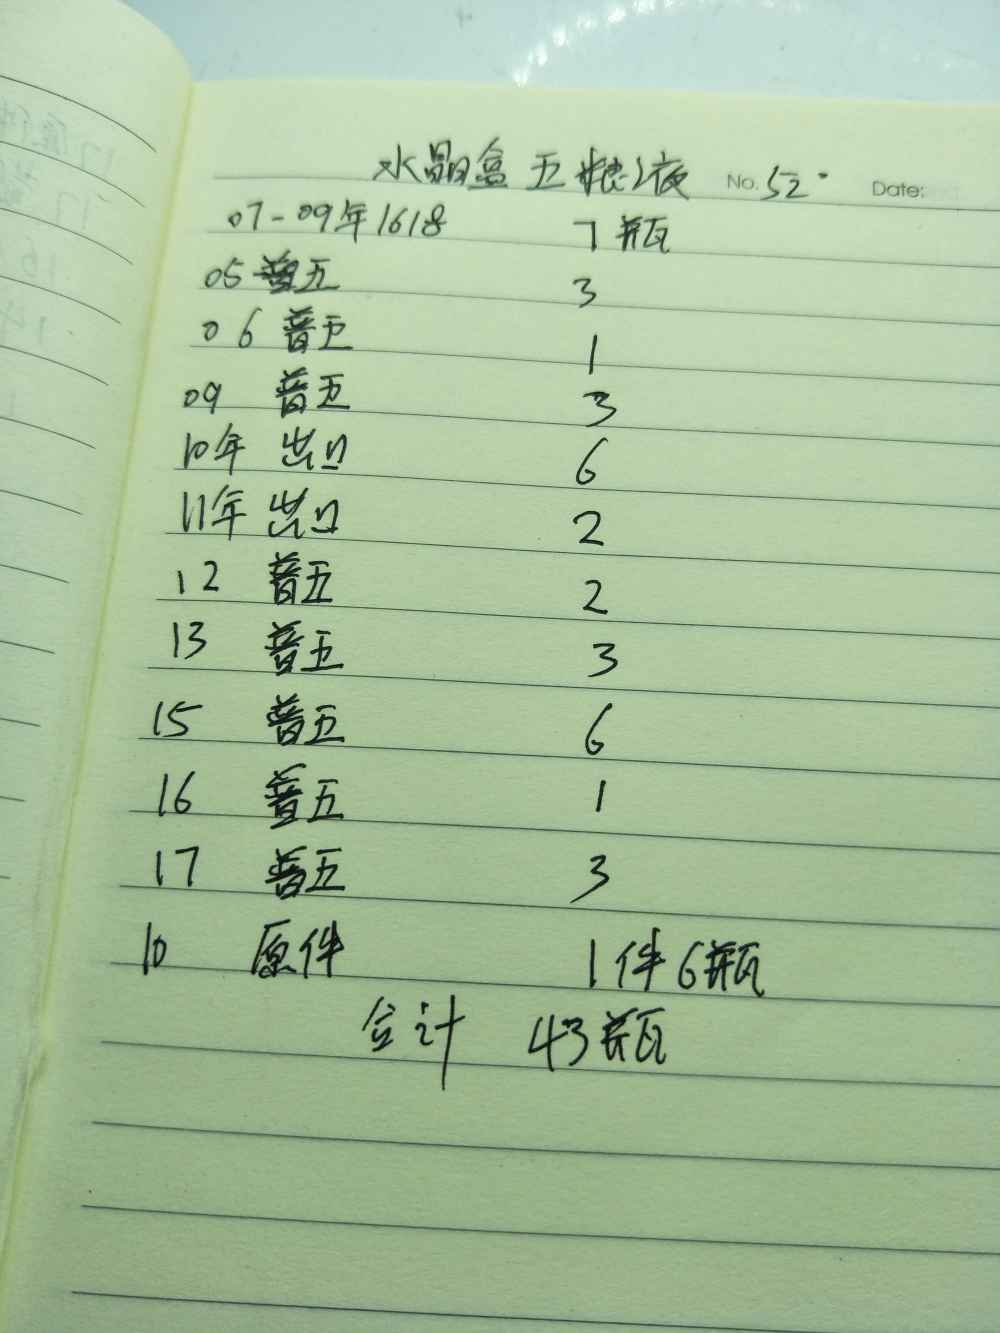 水晶盒五粮液 No. 52° Date:
07-09年1618 7瓶
05 普五 3
06 普五 1
09 普五 3
10年 出口 6
11年 出口 2
12 普五 2
13 普五 3
15 普五 6
16 普五 1
17 普五 3
10 原件 1件6瓶
合计 43瓶